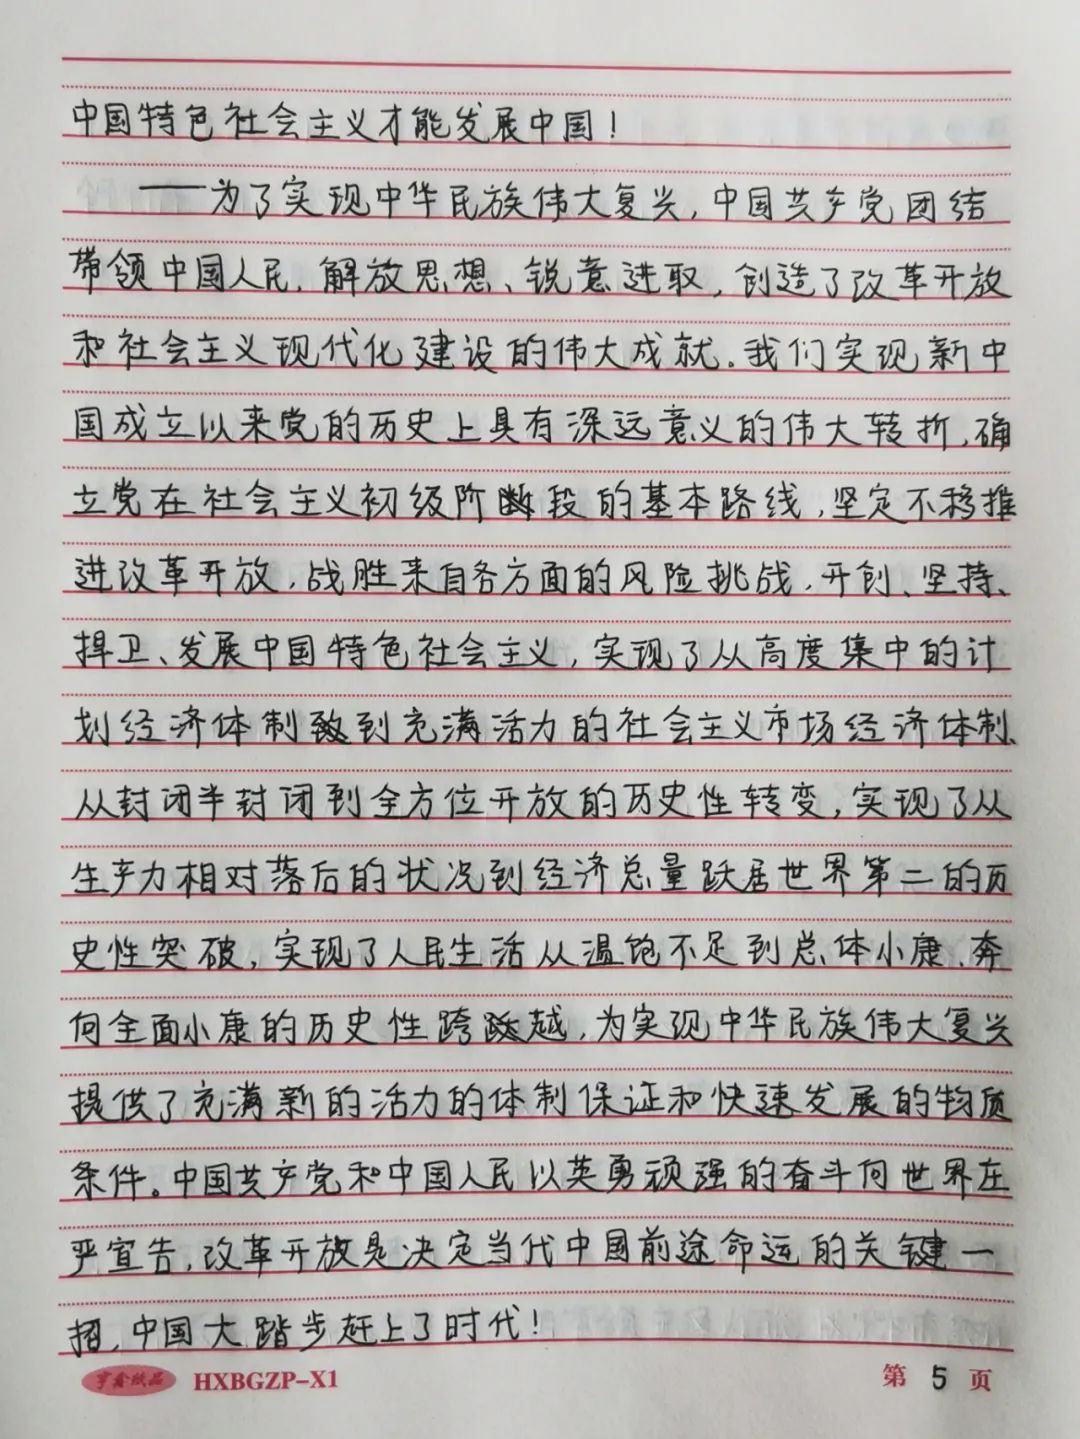 中国特色社会主义才能发展中国！
——为了实现中华民族伟大复兴，中国共产党团结
带领中国人民，解放思想、锐意进取，创造了改革开放
和社会主义现代化建设的伟大成就。我们实现新中
国成立以来党的历史上具有深远意义的伟大转折，确
立党在社会主义初级阶段的基本路线，坚定不移推
进改革开放，战胜来自各方面的风险挑战，开创、坚持、
捍卫、发展中国特色社会主义，实现了从高度集中的计
划经济体制到充满活力的社会主义市场经济体制、
从封闭半封闭到全方位开放的历史性转变，实现了从
生产力相对落后的状况到经济总量跃居世界第二的历
史性突破，实现了人民生活从温饱不足到总体小康、奔
向全面小康的历史性跨越，为实现中华民族伟大复兴
提供了充满新的活力的体制保证和快速发展的物质
条件。中国共产党和中国人民以英勇顽强的奋斗向世界庄
严宣告，改革开放是决定当代中国前途命运的关键一
招，中国大踏步赶上了时代！
亨鑫纸品 HXBGZP-X1 第 5 页